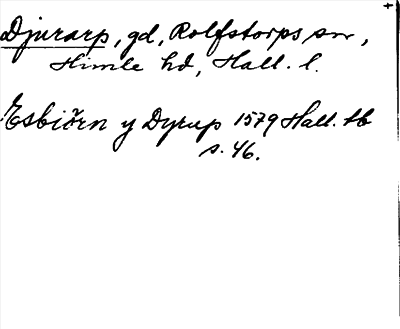 Djurarp, gd, Rolfstorps sn,
Himle hd, Hall. l.
Esbiörn y Dyrup 1579 Hall. tb
s. 46.